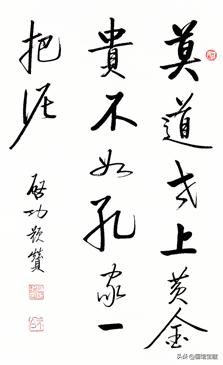 莫道世上黄金
貴不如孔家一
把泥
啓功題贊
头条